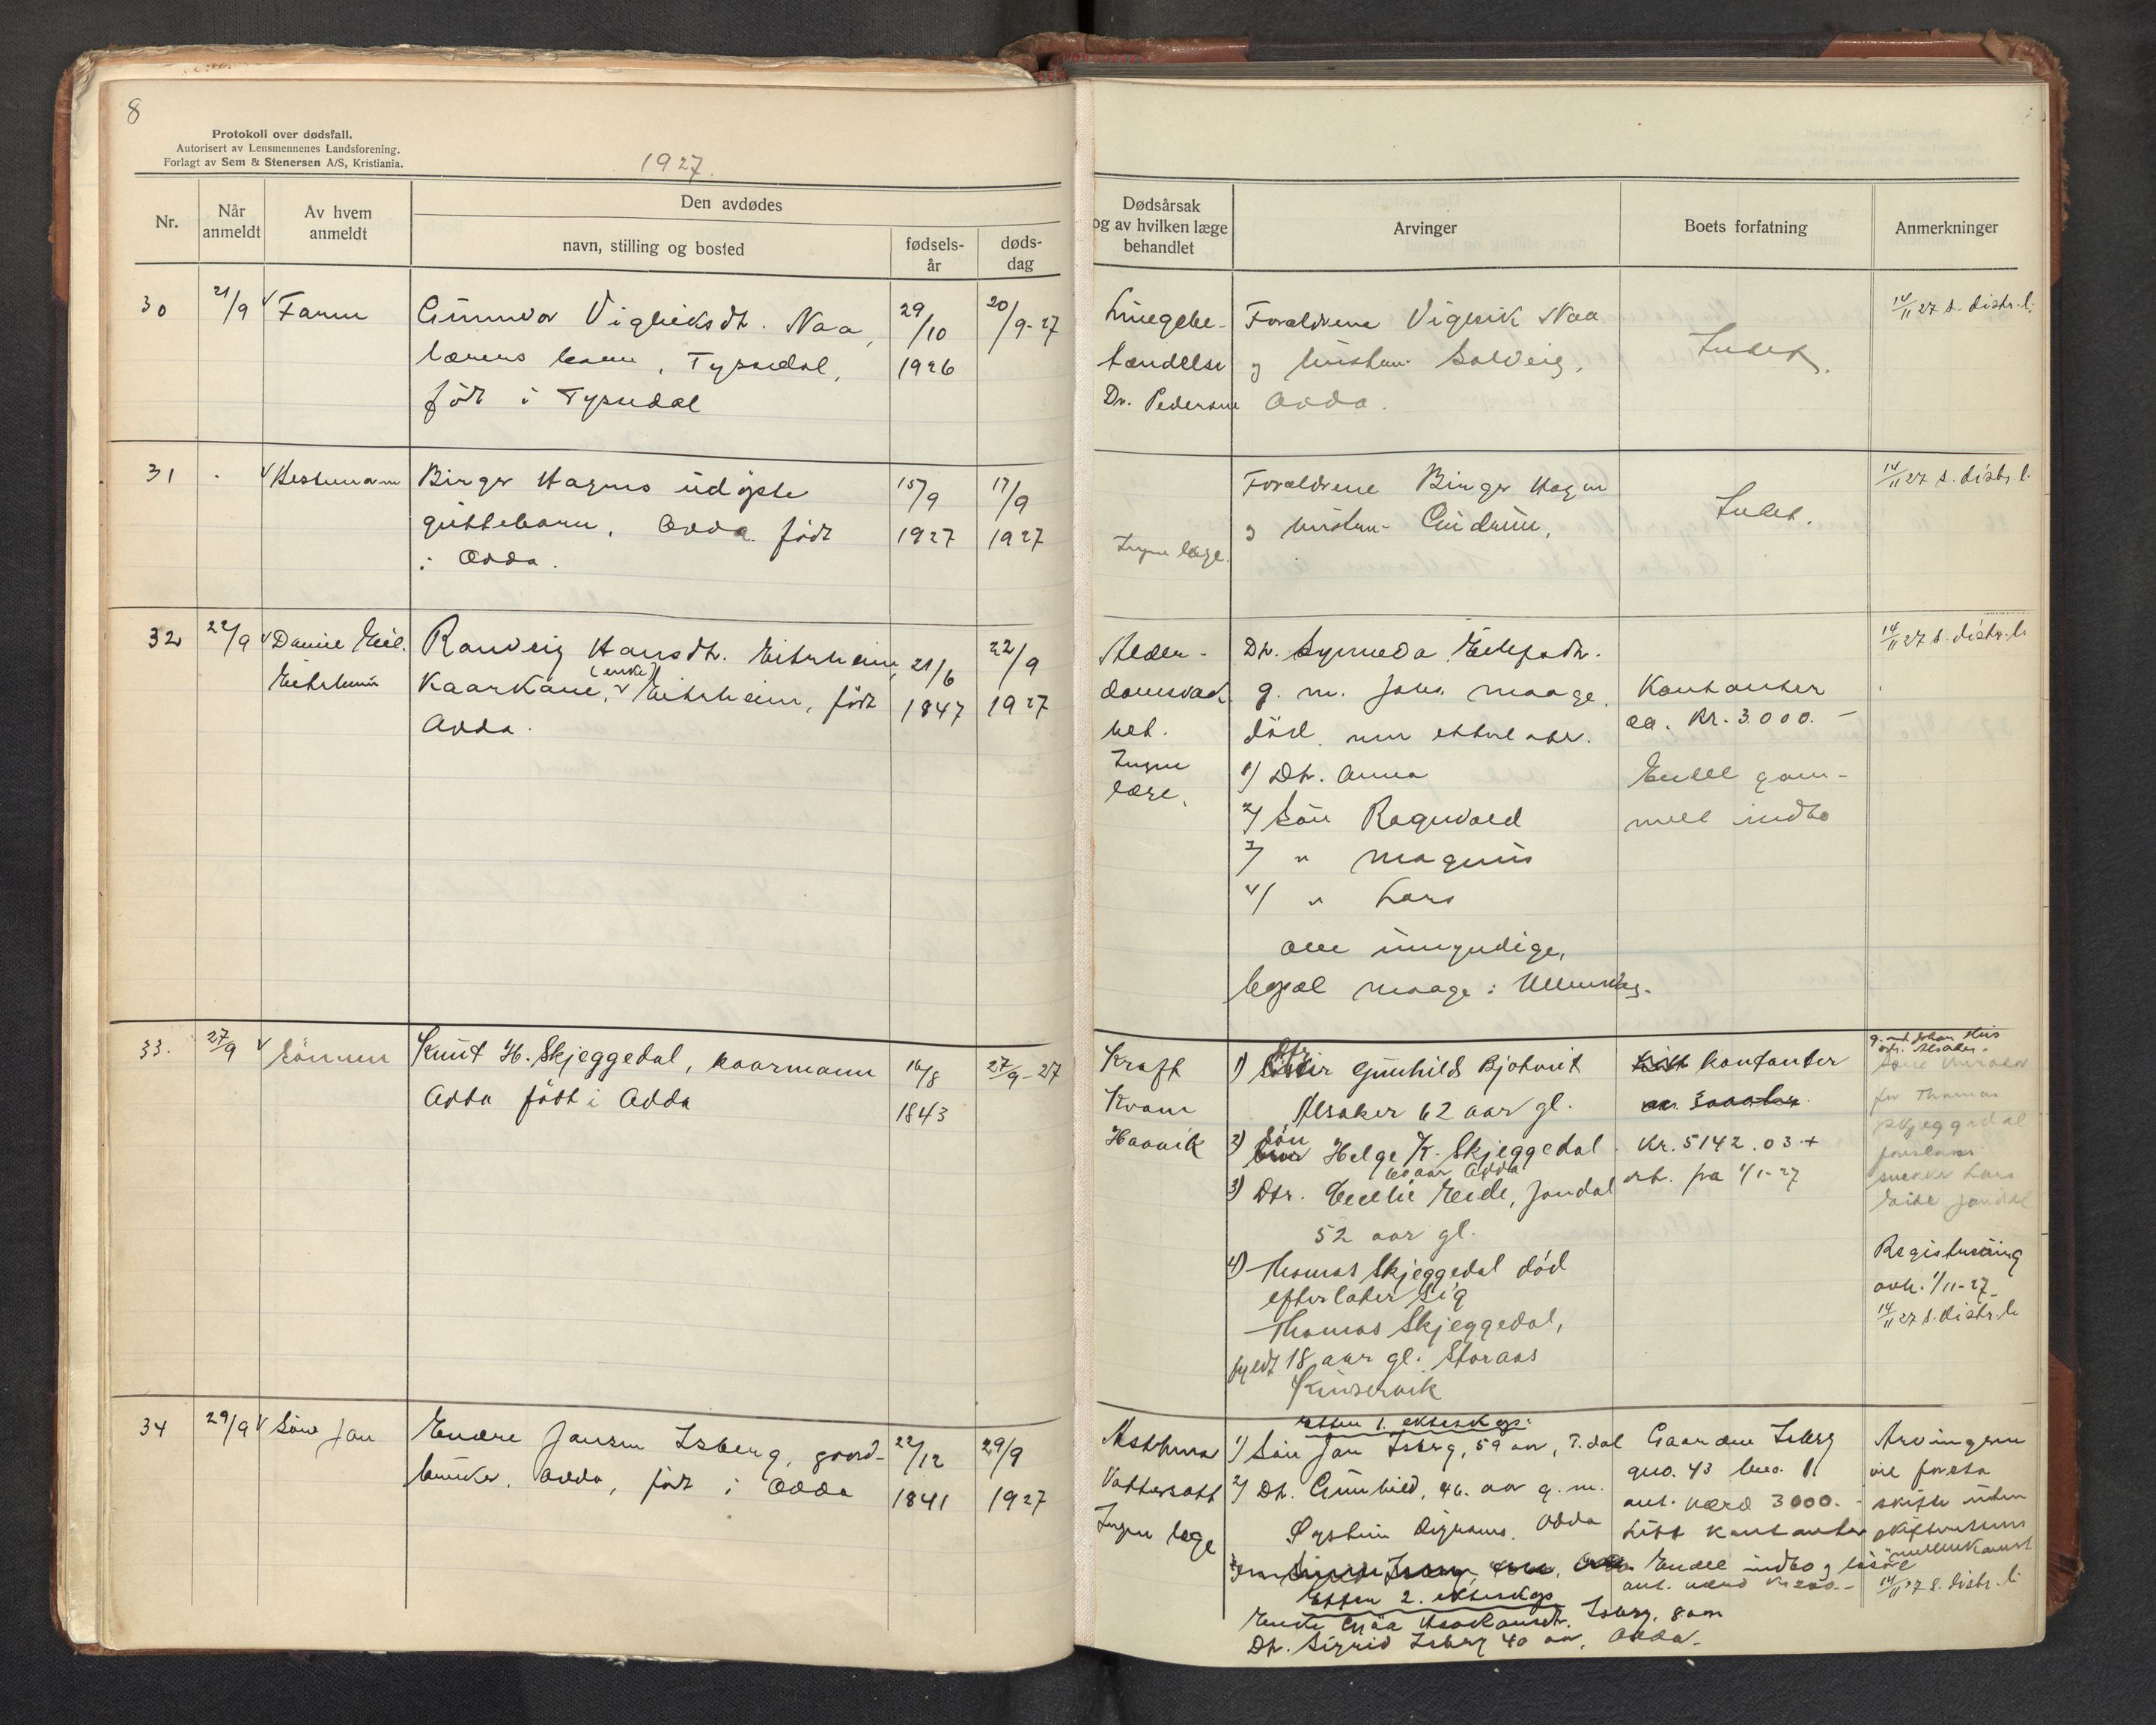 8
Protokoll over dødsfall.
Autorisert av Lensmennenes Landsforening.
Forlagt av Sem & Stenersen A/S, Kristiania.
1927.
Nr.
Når anmeldt
Av hvem anmeldt
Den avdødes
navn, stilling og bosted
fødsels-
år
døds-
dag
Dødsårsak
og av hvilken læge
behandlet
Arvinger
Boets forfatning
Anmerkninger
30
21/9
Faren
Gunnvor Vigleiksdt. Naa,
barn, Tyssedal,
født i Tyssedal
29/10
1926
20/9-27
Lungebe-
tændelse
Dr. Pedersen
Forældrene Vigleik Naa
og hustru Solveig,
Odda.
Intet.
14/11 27 s. distr.l.
31
Birger Hagens udøpte
guttebarn, Odda født
i Odda.
15/9
1927
17/9
1927
Ingen læge.
Forældrene Birger Hagen
og hustru Gudrun.
Intet.
14/11 27 s. distr.l.
32
22/9
Daniel
Eitrheim
Randveig Hansdt. Eitrheim,
(enke)
Kaarkone, Eitrheim, født
Odda.
21/6
1847
22/9
1927
Alder-
domsvak-
het.
Ingen
læge.
Dt. Synneva
g. m. Johs. Maage,
død
1) Dt. Anna
2) Søn Ragnvald
3) " Magnus
4) " Lars
alle umyndige,
bopæl Maage i Ullensvang.
Kontanter
ca. Kr. 3000.-
Endel gam-
mell indbo
14/11 27 s. distr.l.
33.
27/9
Sønnen
Knut H. Skjeggedal, kaarmann
Odda født i Odda
16/8
1843
27/9-27
Kræft
Kvam
Haavik
Dtr
1) Gunhild Bjotveit
Alsaker 62 aar gl.
Søn
2) Helge K. Skjeggedal
60 aar Odda
3) Dtr. Cecelie Eide, Jondal
52 aar gl.
4) Thomas Skjeggedal død
efterlater sig
Thomas Skjeggedal,
fyldt 18 aar gl. Storaas
Kinservik
kontanter
Kr. 5142.03 +
rt. fra 1/1-27
for Thomas
Skjeggedal
snekker Lars
Eide Jondal
Registrering
avh. 1/11-27
14/11 27 s. distr.l.
34
29/9
Søn Jan
Endre Jansen Isberg, gaard-
bruker, Odda, født i Odda
22/12
1841
29/9
1927
Asthma
Vattersott
Ingen læge
Efter 1. ekteskap:
1) Søn Jan Isberg, 59 aar, T.dal
2) Dt. Gunhild, 46 aar g. m.
Øystein Odda
Efter 2. ekteskap
Enke Isberg, 80 aar
Dt. Sigrid Isberg 40 aar, Odda.
Gaarden Isberg
gno. 43 bno. 11
ant. værd 3000.-
Litt kontanter
Endel indbo og løsøre
ant. værd Kr. 200.-
Arvingene
vil foreta
skifte uten
skifterettens
mellemkomst
14/11 27 s. distr.l.